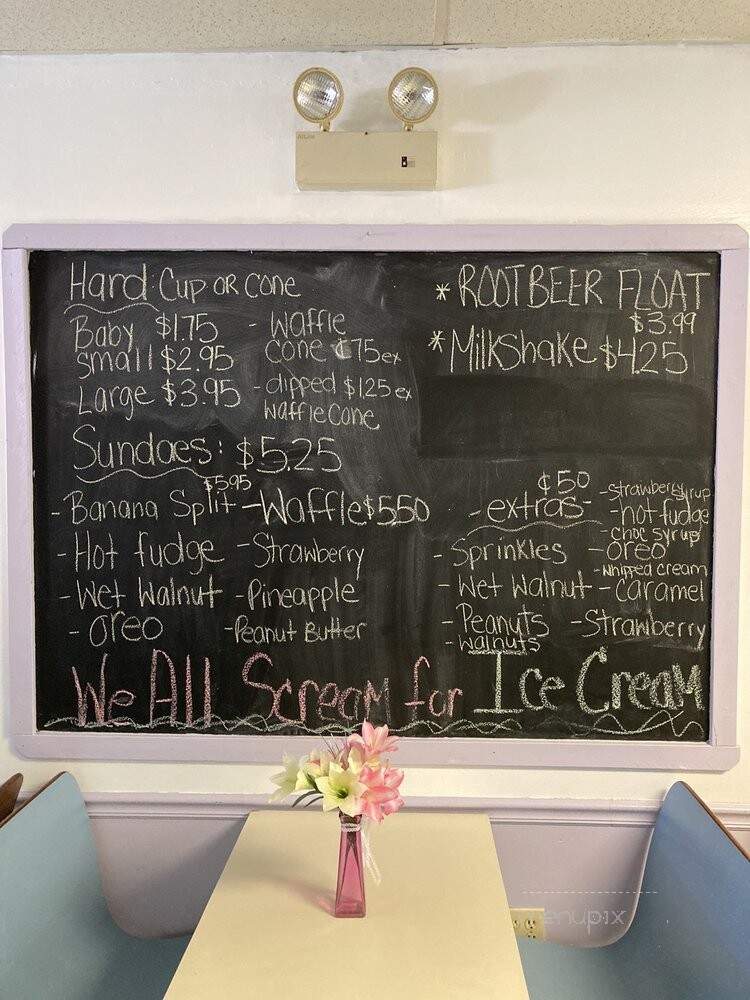 Hard Cup or Cone
Baby $1.75
Small $2.95
Large $3.95
- Waffle
cone 75 ex
- dipped $1.25 ex
waffle cone
Sundaes: $5.25
$5.95
- Banana Split - Waffle $5.50
- Hot fudge - Strawberry
- Wet Walnut - Pineapple
- Oreo - Peanut Butter
* ROOTBEER FLOAT
$3.99
* Milkshake $4.25
$50
- extras -
- Sprinkles
- Wet Walnut
- Peanuts
- Walnuts
- Strawberry syrup
- hot fudge
choc syrup
- oreo
- whipped cream
- caramel
- Strawberry
We All Scream for Ice Cream
menupix